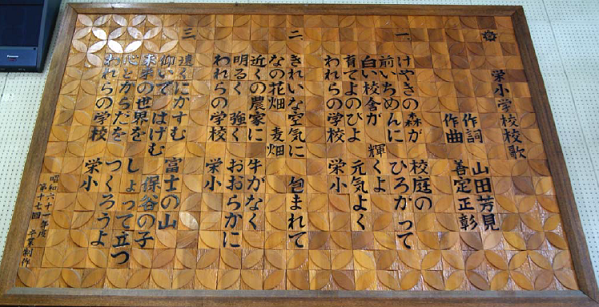 栄小学校校歌
作詞 山田芳見
作曲 善定正彰
一、けやきの森が 校庭の
前いちめんに ひろがって
白い校舎が 輝くよ
育てよのびよ 元気よく
われらの学校 栄小
二、きれいな空気に 包まれて
なの花畑 麦畑
近くの農家に 牛がなく
明るく 強く おおらかに
われらの学校 栄小
三、遠くにかすむ 富士の山
仰いで はげむ 保谷の子
未来の世界を しょって立つ
心とからだを つくろうよ
われらの学校 栄小
昭和六十一年度
第十七回 卒業制作
Panasonic